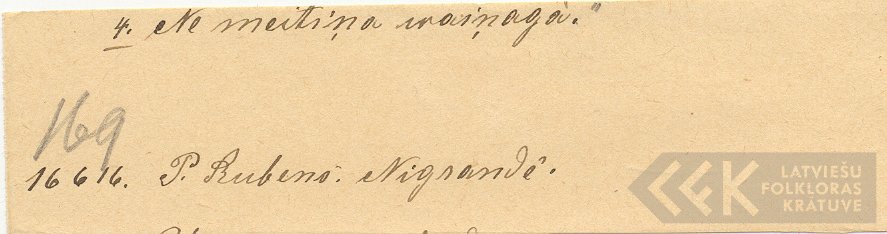 4. Ne meitiņa waiņagâ."
169
16616. P. Rubens. Nigrandē.
LATVIEŠU
FOLKLORAS
KRĀTUVE